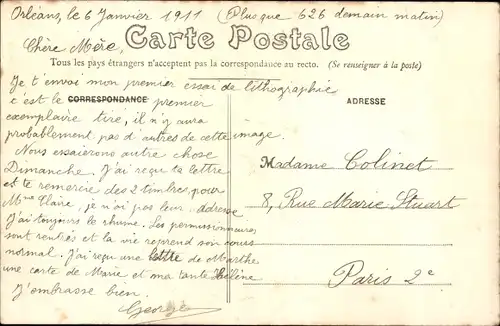 Orléans, le 6 Janvier 1911 (Plus que 626 demain matin)
Chère Mère,
Carte Postale
Tous les pays étrangers n'acceptent pas la correspondance au recto. (Se renseigner à la poste)
Je t'envoi mon premier essai de lithographie
c'est le CORRESPONDANCE premier
exemplaire tiré, il n'y aura
probablement pas d'autres de cette image.
Nous essaierons autre chose
Dimanche. J'ai reçu ta lettre
et te remercie des 2 timbres, pour
Mme Claire, je n'ai pas leur adresse
J'ai toujours le rhume. Les permissionnaires
sont rentrés et la vie reprend son cours
normal. J'ai reçu une lettre de Marthe
une carte de Marie et ma tante Hélène
J'embrasse bien.
George
ADRESSE
Madame Colinet
8, Rue Marie Stuart
Paris 2e